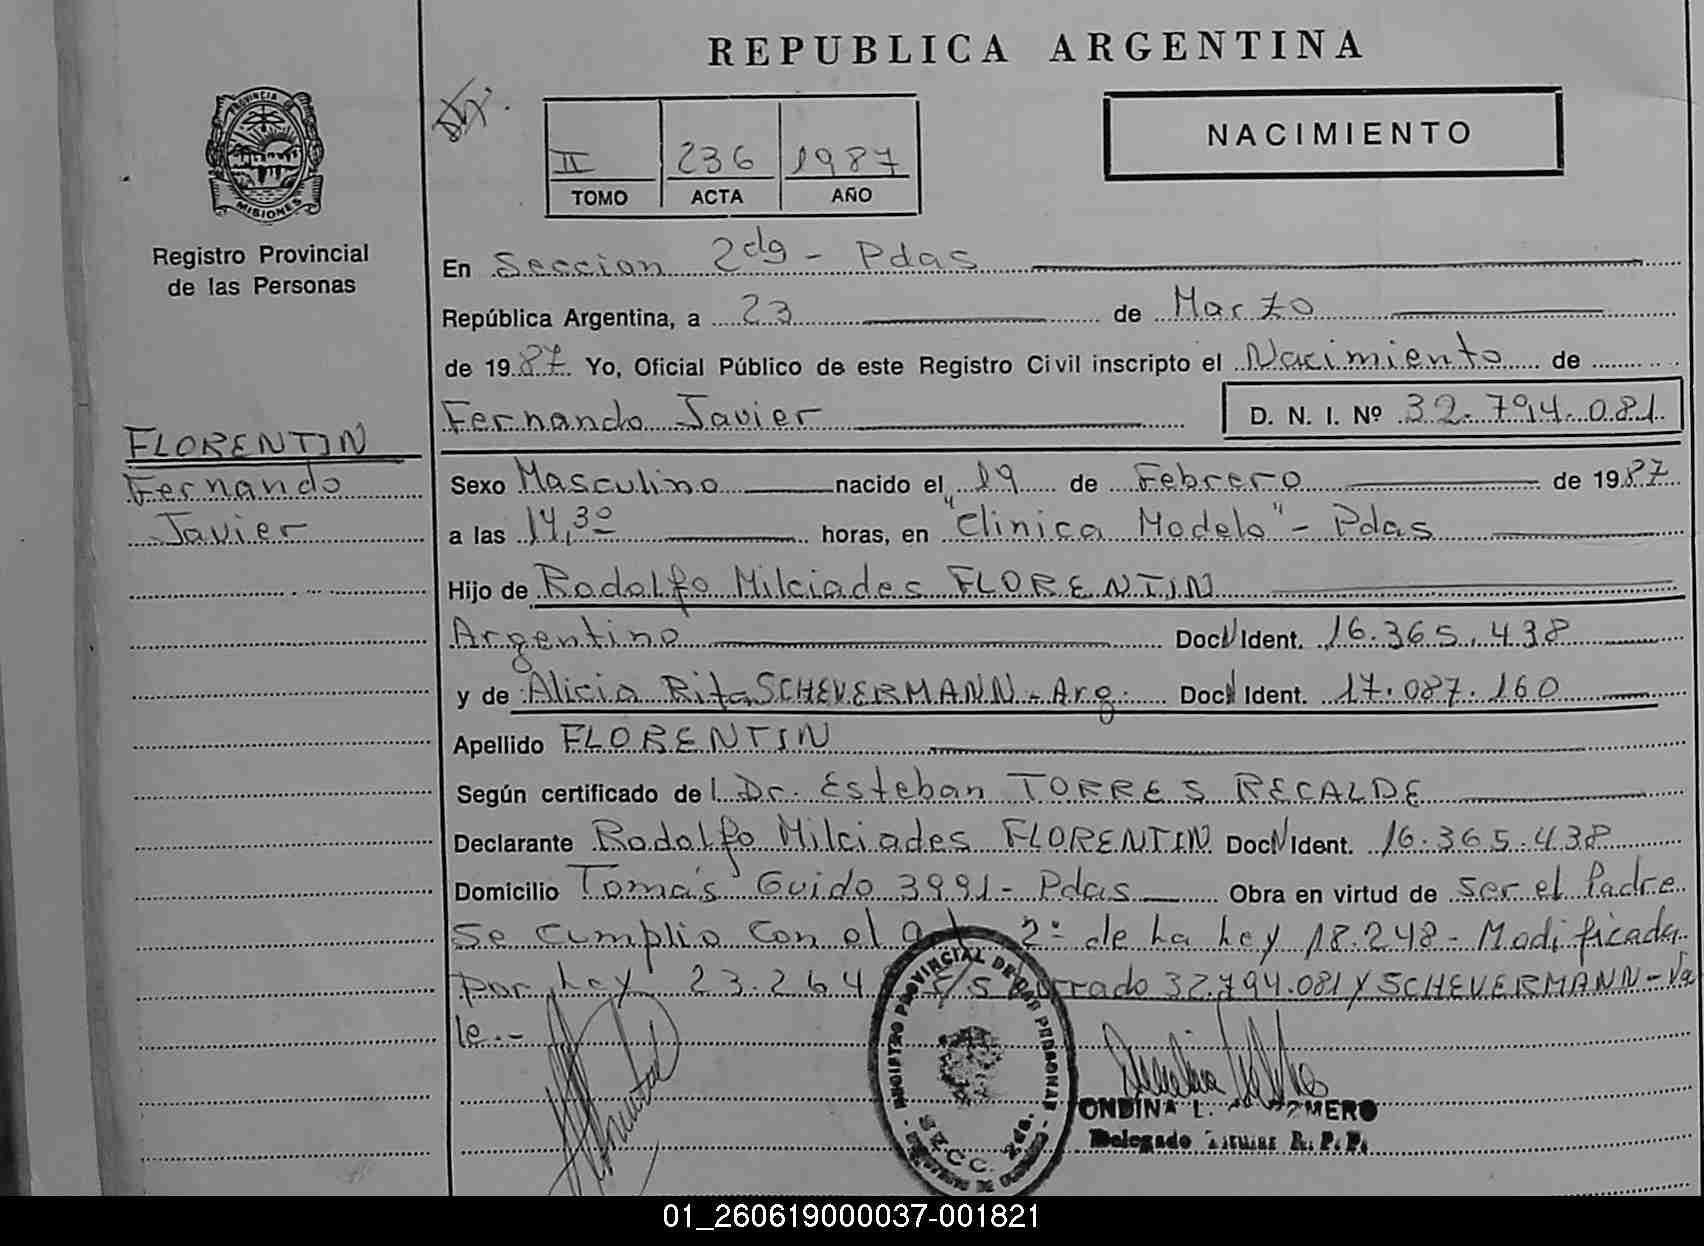 REPUBLICA ARGENTINA
NACIMIENTO
II 236 1987
TOMO ACTA AÑO
PROVINCIA DE
MISIONES
Registro Provincial
de las Personas
FLORENTIN
Fernando
Javier
En Seccion 2da - Pdas
República Argentina, a 23 de Marzo
de 1987. Yo, Oficial Público de este Registro Civil inscripto el Nacimiento de
Fernando Javier D. N. I. Nº 32.794.081
Sexo Masculino nacido el 19 de Febrero de 1987
a las 14,30 horas, en "Clinica Modelo" - Pdas
Hijo de Rodolfo Milciades FLORENTIN
Argentino Doc. Ident. 16.365.438
y de Alicia Rita SCHEVERMANN - Arg. Doc. Ident. 17.087.160
Apellido FLORENTIN
Según certificado del Dr. Esteban TORRES RECALDE
Declarante Rodolfo Milciades FLORENTIN Doc. Ident. 16.365.438
Domicilio Tomás Guido 3991 - Pdas Obra en virtud de ser el Padre
Se cumplio con el 2º de la ley 18.248 - Modificada
por ley 23.264 32.794.081 y SCHEVERMANN - Va
le.-
REGISTRO PROVINCIAL DE LAS PERSONAS
SECC. 2da.
ONDINA L. ROMERO
Delegado Titular R. P. P.
01_260619000037-001821